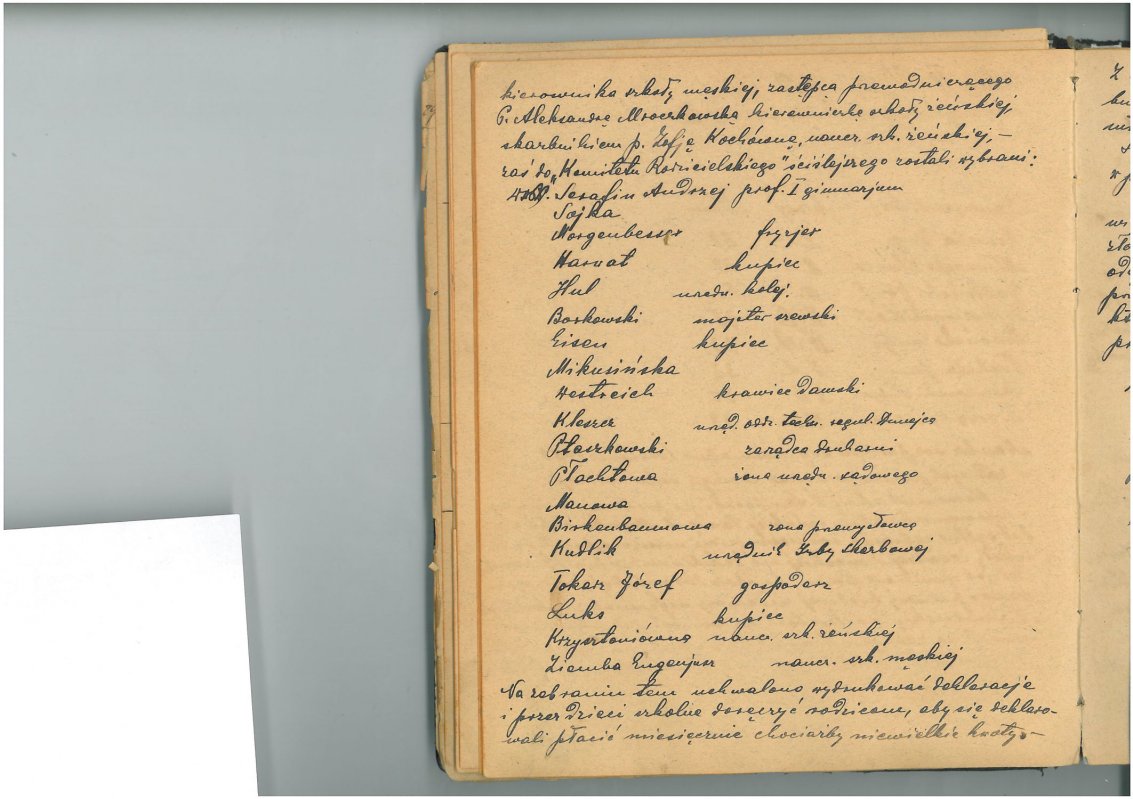 kierownika szkoły męskiej, zastępcą przewodniczącego
P. Aleksandrę Mroczkowską kierowniczkę szkoły żeńskiej
skarbnikiem p. Zofję Kochównę, naucz. szk. żeńskiej, –
zaś do „Komitetu Rodzicielskiego" ściślejszego zostali wybrani:
Serafin Andrzej prof. I gimnazjum
Sojka
Morgenbesser fryzjer
Harvat kupiec
Hul urzędn. kolej.
Borkowski majster szewski
Eisen kupiec
Mikusińska
Westreich krawiec damski
Kleszcz urzęd. oddz. techn. regul. Dunajca
Ptaszkowski zarządca drukarni
Płachtowa żona urzędn. sądowego
Manowa
Birkenbaumowa żona przemysłowca
Kudlik urzędnik Izby Skarbowej
Tokarz Józef gospodarz
Luks kupiec
Krzysztoniówna naucz. szk. żeńskiej
Ziemba Eugenjusz naucz. szk. męskiej
Na zebraniu tem uchwalono wydrukować deklaracje
i przez dzieci szkolne doręczyć rodzicom, aby się deklaro-
wali płacić miesięcznie chociażby niewielkie kwoty, –